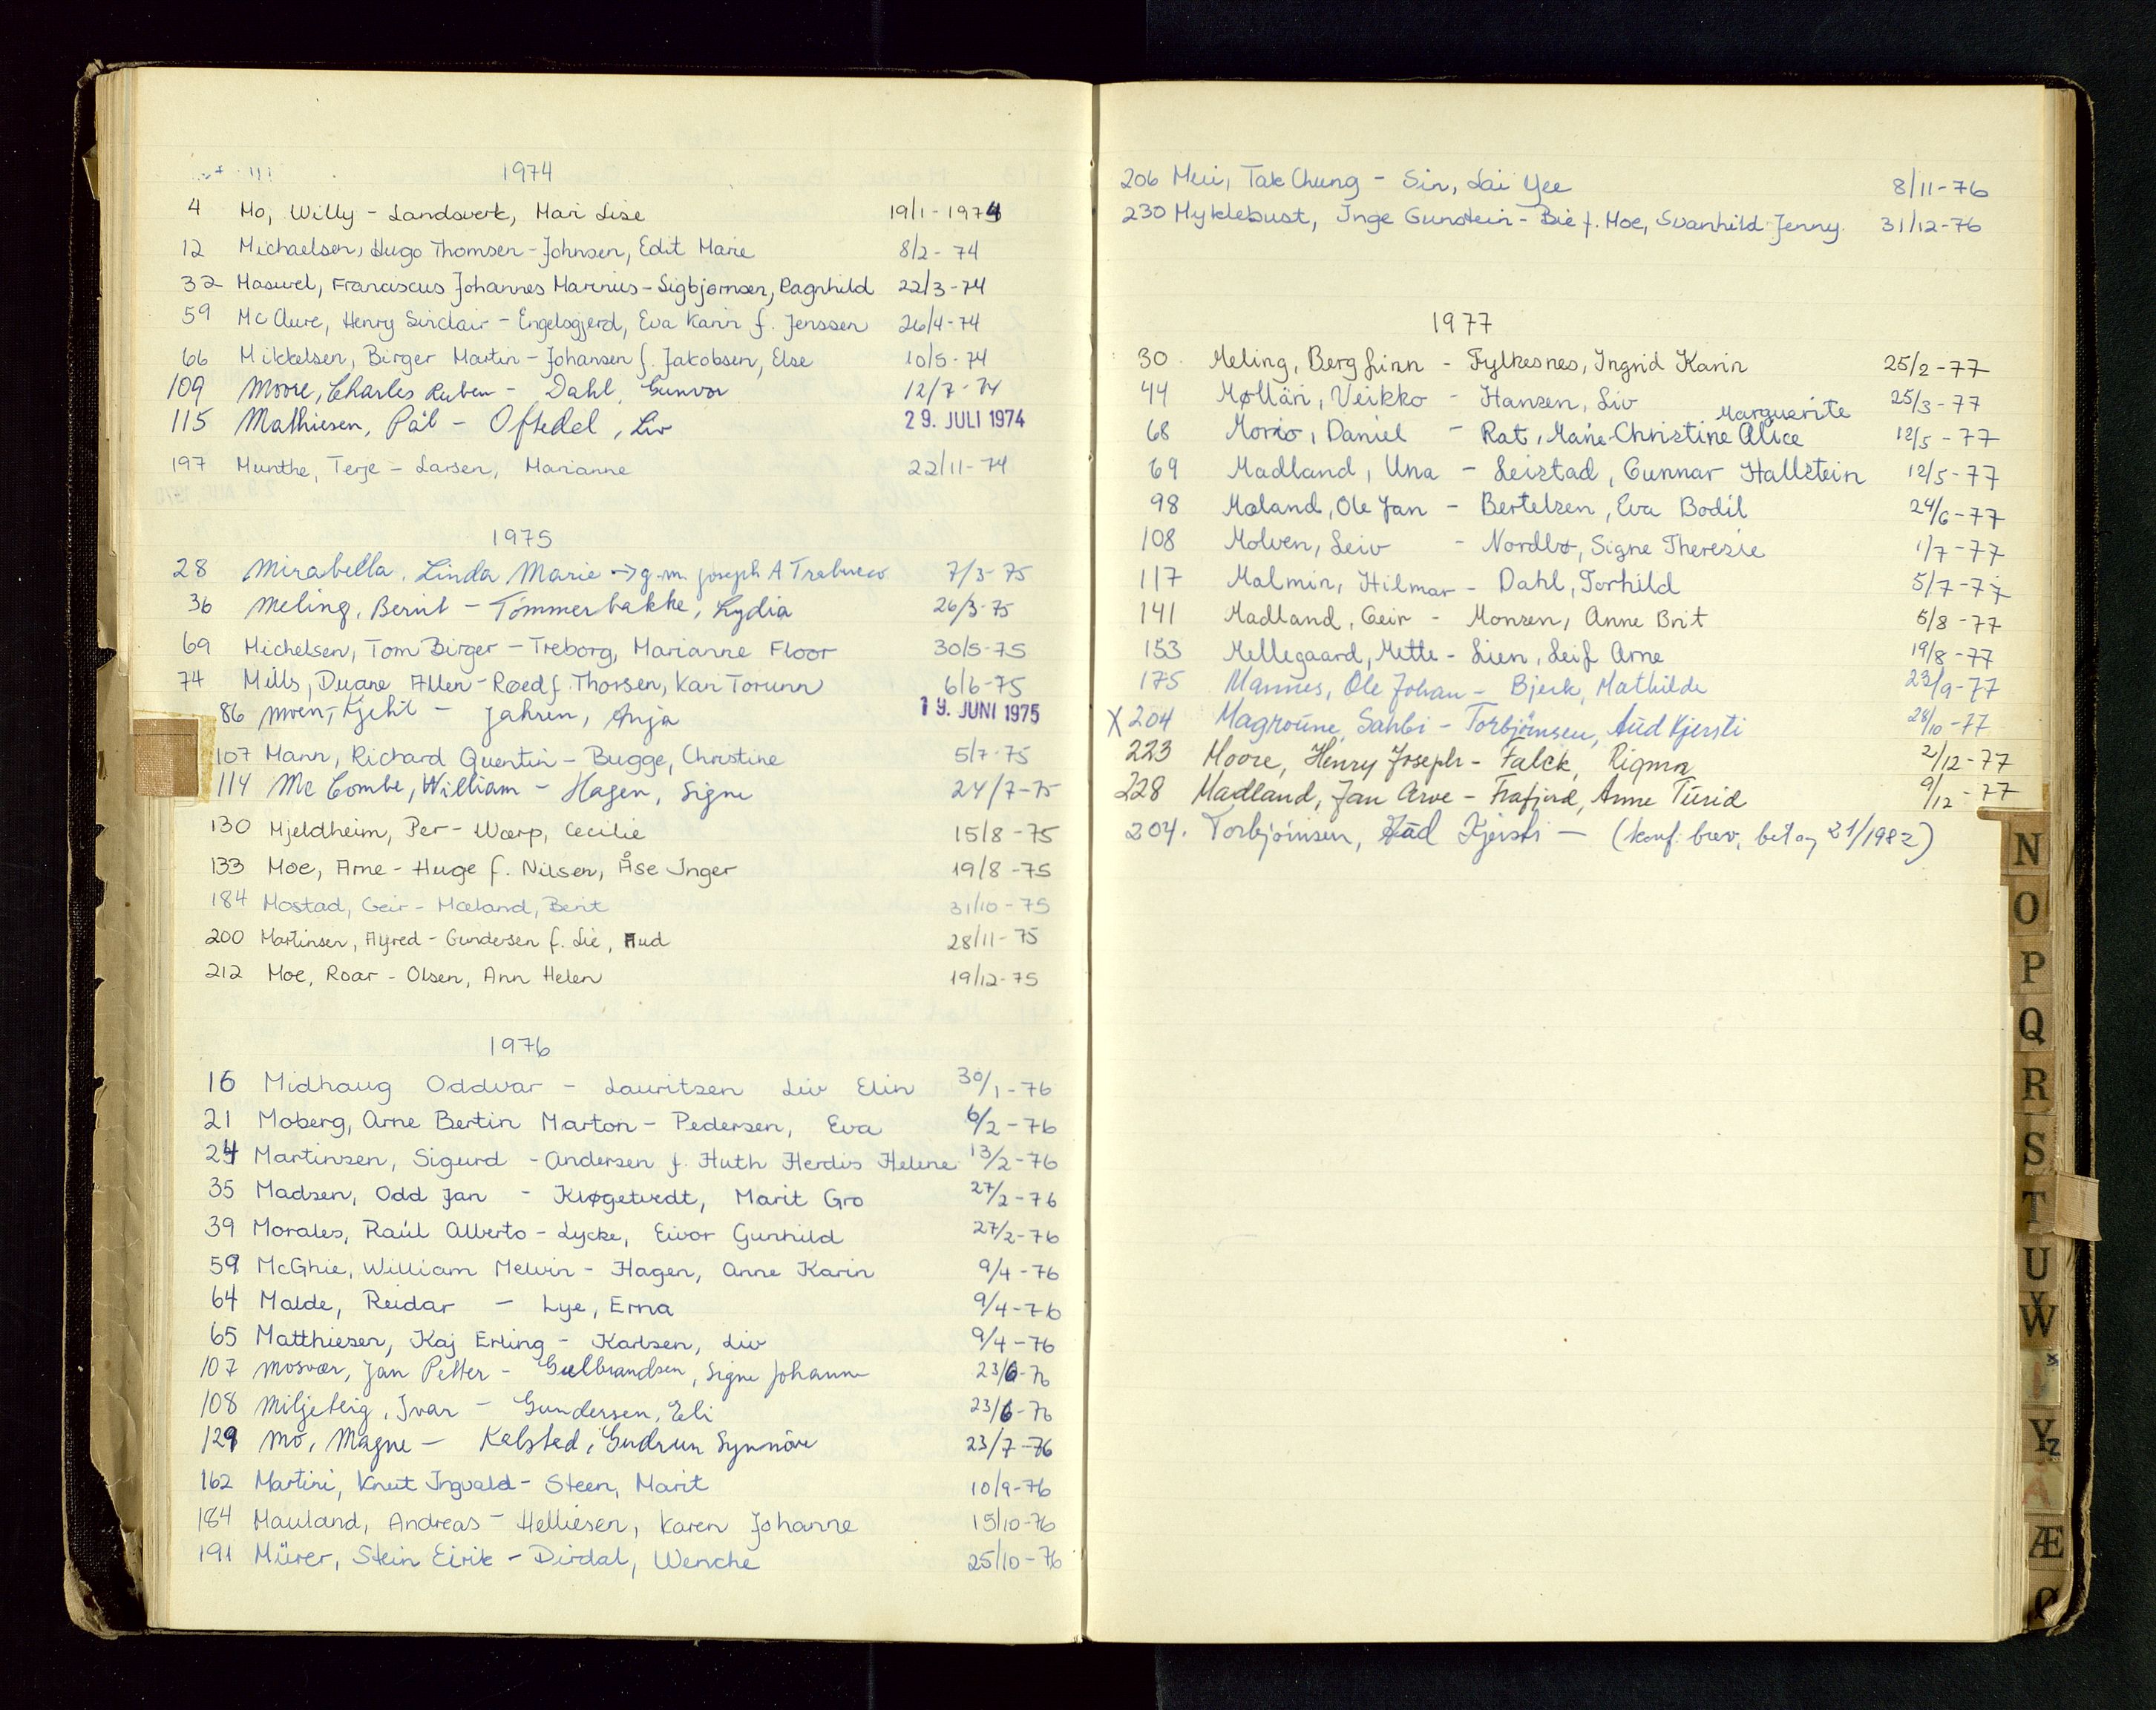 1974
4 Mo, Willy - Landsverk, Mari Lise 19/1-1974
12 Michaelsen, Hugo Thomsen - Johnsen, Edit Marie 8/2-74
32 Maswel, Franciscus Johannes Marinus - Sigbjørnsen, Ragnhild 22/3-74
59 Mc Clure, Henry Sinclair - Engelsgjerd, Eva Karin f. Jenssen 26/4-74
66 Mikkelsen, Birger Martin - Johansen f. Jakobsen, Else 10/5-74
109 Moore, Charles Ruben - Dahl, Gunvor 12/7-74
115 Mathiesen, Pål - Oftedal, Liv 29. JULI 1974
197 Munthe, Terje - Larsen, Marianne 22/11-74
1975
28 Mirabella, Linda Marie → g.m. Joseph A 7/3-75
36 Meling, Bernt - Tømmerbakke, Lydia 26/3-75
69 Michelsen, Tom Birger - Treborg, Marianne Floor 30/5-75
74 Mills, Duane Allen - Røed f. Thorsen, Kari Torunn 6/6-75
86 Moen, Kjetil - Jahren, Anja 19. JUNI 1975
107 Mann, Richard Quentin - Bugge, Christine 5/7-75
114 Mc Combe, William - Hagen, Signe 24/7-75
130 Mjeldheim, Per - Wærp, Cecilie 15/8-75
133 Moe, Arne - Huge f. Nilsen, Åse Inger 19/8-75
184 Mostad, Geir - Mæland, Berit 31/10-75
200 Martinsen, Alfred - Gundersen f. Lie, Aud 28/11-75
212 Moe, Roar - Olsen, Ann Helen 19/12-75
1976
16 Midhaug Oddvar - Lauritzen Liv Elin 30/1-76
21 Moberg, Arne Bertin Marton - Pedersen, Eva 6/2-76
24 Martinsen, Sigurd - Andersen f. Huth Herdis Helene 13/2-76
35 Madsen, Odd Jan - Kløgetvedt, Marit Gro 27/2-76
39 Morales, Raúl Alberto - Lycke, Eivor Gunhild 27/2-76
59 McGhie, William Melvin - Hagen, Anne Karin 9/4-76
64 Malde, Reidar - Lye, Erna 9/4-76
65 Matthiesen, Kaj Erling - Karlsen, Liv 9/4-76
107 Mosvær, Jan Petter - Gulbrandsen, Signe Johanne 23/6-76
108 Miljeteig, Ivar - Gundersen, Eli 23/6-76
129 Mo, Magne - Kalstad, Gudrun Synnøve 23/7-76
162 Martini, Knut Ingvald - Steen, Marit 10/9-76
184 Mauland, Andreas - Helliesen, Karen Johanne 15/10-76
191 Mürer, Stein Eirik - Dirdal, Wenche 25/10-76
206 Mui, Tak Chung - Sin, Lai Yee 8/11-76
230 Myklebust, Inge Gunstein - Bie f. Moe, Svanhild Jenny. 31/12-76
1977
30. Meling, Berg Finn - Fylkesnes, Ingrid Karin 25/2-77
44 Mølläri, Veikko - Hansen, Liv 25/3-77
Marguerite
68 Morio, Daniel - Rat, Marie-Christine Alice 12/5-77
69 Madland, Una - Leistad, Gunnar Hallstein 12/5-77
98 Maland, Ole Jan - Bertelsen, Eva Bodil 24/6-77
108 Molven, Leiv - Nordbø, Signe Theresie 1/7-77
117 Malmin, Hilmar - Dahl, Torhild 5/7-77
141 Madland, Geir - Monsen, Anne Brit 5/8-77
153 Mellegaard, Mette - Lien, Leif Arne 19/8-77
175 Mannes, Ole Johan - Bjerk, Mathilde 23/9-77
X 204 Magroune, Sahbi - Torbjørnsen, Aud Kjersti 28/10-77
223 Moore, Henry Joseph - Falck, Rigmor 2/12-77
228 Madland, Jan Arve - Frafjord, Anne Turid 9/12-77
204. Torbjørnsen, Aud Kjersti - (konf. brev, bet og 21/1982)
N
O
P
Q
R
S
T
U
V
W
X
Y
Z
Å
Æ
Ø